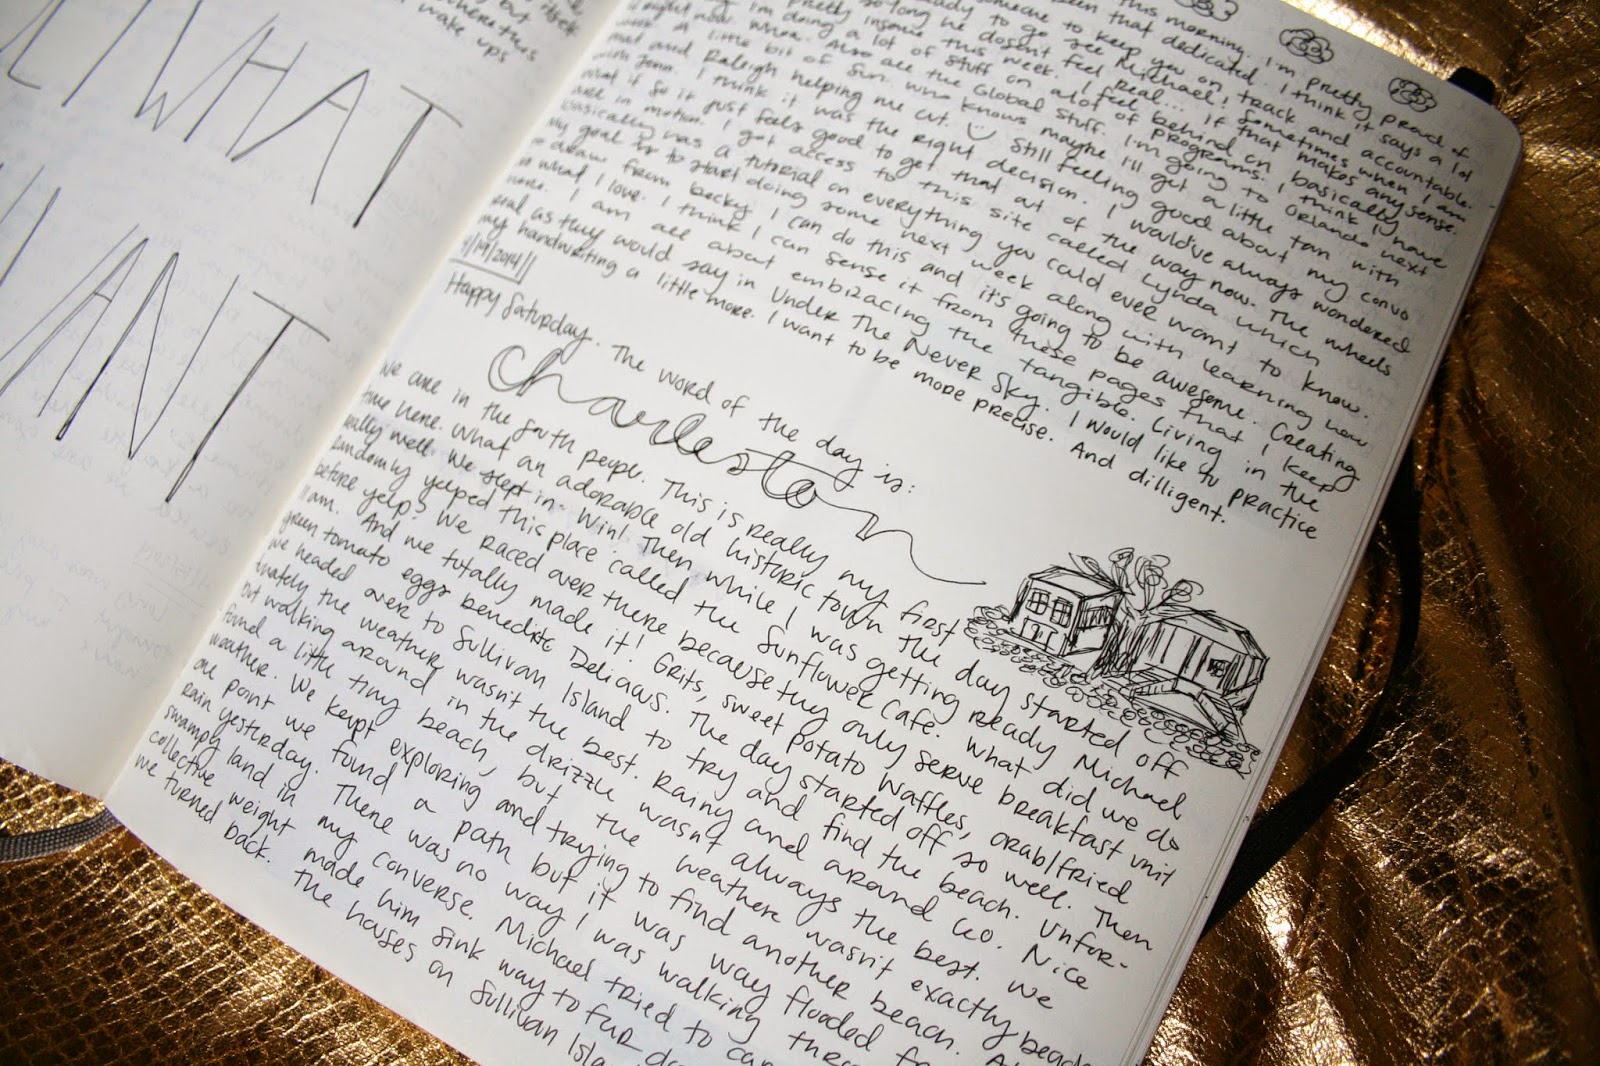 itself
but
where this
make ups
WHAT
WANT
this morning. I'm pretty proud of
been that dedicated. I think it says a lot
someone to keep you on track and accountable.
ready to go see Michael! Sometimes when I am
so long he doesn't feel real... if that makes any sense.
pretty insane this week. I feel behind on basically
I'm doing a lot of stuff on a lot of programs. I think I have
right now. When. Also all the Global stuff. I'm going to Orlando next
A little bit of sun. Who knows maybe I'll get a little tan with
and Raleigh helping me out. Still feeling good about my convo
with Jenn. I think it was the right decision. I would've always wondered
what if so it just feels good to get that out of the way now. The wheels
are in motion. I got access to this site called Lynda which
basically was a tutorial on everything you could ever want to know.
My goal is to start doing some next week along with learning how
to draw from Becky. I can do this and it's going to be awesome. Creating
what I love. I think I can sense it from these pages that I keep
more. I am all about embracing the tangible. Living in the
real as they would say in Under The Never Sky. I would like to practice
my handwriting a little more. I want to be more precise. And dilligent.
/19/2014
Happy Saturday. The word of the day is:
Charleston
We are in the south people. This is really my first
time here. What an adorable old historic town. The day started off
really well. We slept in. Win! Then while I was getting ready Michael
randomly yelped this place called the Sunflower Café. What did we do
before yelp? We raced over there because they only serve breakfast until
11am. And we totally made it! Grits, sweet potato waffles, crab/fried
green tomato eggs benedict. Delicious. The day started off so well. Then
we headed over to Sullivan Island to try and find the beach. Unfor-
tunately the weather wasn't the best. Rainy and around 60. Nice
but walking around in the drizzle wasn't always the best. We
found a little tiny beach, but the weather wasn't exactly beach
weather. We kept exploring and trying to find another beach. At
one point we found a path but it was way flooded from
rain yesterday. There was no way I was walking thro
swampy land in my converse. Michael tried to car
collective weight made him sink way to fur do
we turned back. The houses on Sullivan Isla